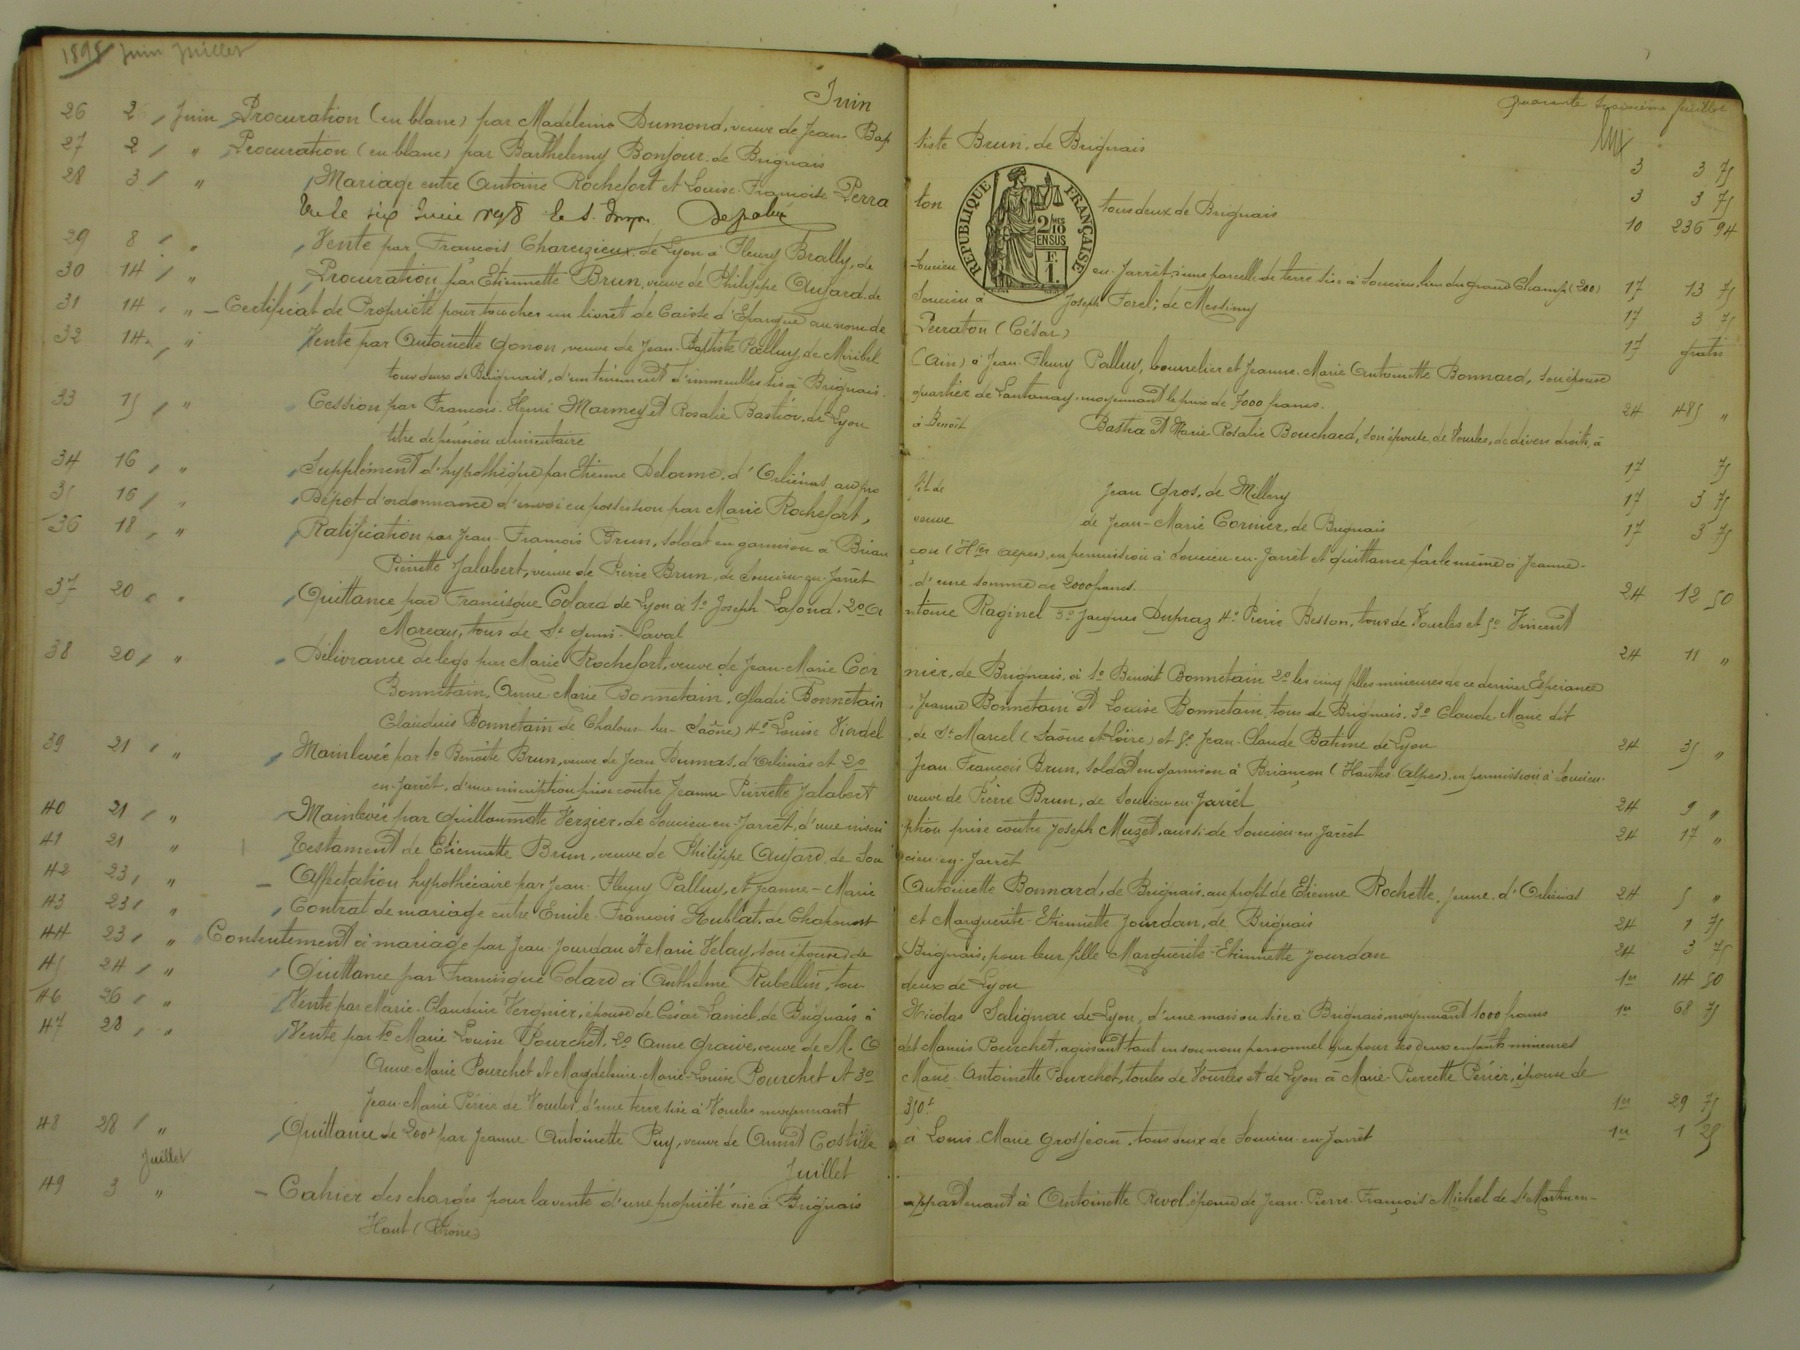 1898 Juin Juillet
quarante troisième feuillet
Juin
26 2 Juin Procuration (en blanc) par Madeleine Dumond, veuve de Jean-Bap tiste Brun, de Brignais 3 3 75
27 2 " Procuration (en blanc) par Barthelemy Bonjour, de Brignais 3 3 75
28 3 " Mariage entre Antoine Rochefort et Louise Françoise Perra ton tous deux de Brignais 10 236 94
REPUBLIQUE FRANÇAISE
2/10 EN SUS
F. 1.
Vu le six Juin 1898
29 8 " Vente par François Charezieux de Lyon à Fleury Brally, de Soucieu en Jarrêt, d'une parcelle de terre sise à Soucieu, lieu du grand Champ (200) 17 13 75
30 14 " Procuration par Etiennette Brun, veuve de Philippe Aujard de Soucieu à Joseph Forel, de Messimy 17 3 75
31 14 " Certificat de Propriété pour toucher un livret de Caisse d'Epargne au nom de Perraton (César) 17 gratis
32 14 " Vente par Antoinette Gonon, veuve de Jean-Baptiste Palluy, de Miribel (Ain) à Jean-Fleury Palluy, bourrelier et Jeanne-Marie Antoinette Bonnard, son épouse
tous deux de Brignais, d'un tènement d'immeubles sis à Brignais, quartier de moyennant le prix de 7000 francs. 24 485 "
33 15 " Cession par François-Henri Marmey et Rosalie Bastion, de Lyon à Benoît Bastia et Marie Rosalie Bouchard, son épouse, de Vourles, de divers droits, à
titre de pension alimentaire 17 75
34 16 " Supplément d'hypothèque par Etienne Delorme, d'Orliénas au pro fit de Jean Gros, de Millery 17 3 75
35 16 " Dépot d'ordonnance d'envoi en possession par Marie Rochefort, veuve de Jean-Marie Cornier, de Brignais 17 3 75
36 18 " Ratification par Jean-François Brun, soldat en garnison à Brian çon (Htes Alpes), en permission à Soucieu-en-Jarrêt et quittance par le même à Jeanne-
Pierrette Jalabert, veuve de Pierre Brun, de Soucieu-en-Jarrêt d'une somme de 2000 francs. 24 12 50
37 20 " Quittance par Francisque Colard de Lyon à 1° Joseph Lafond, 2° An toine Raginel 3° Jacques Dupraz 4° Pierre Besson, tous de Vourles et 5° Vincent
Moreau, tous de St Genis-Laval 24 11 "
38 20 " Délivrance de legs par Marie Rochefort, veuve de Jean-Marie Cor nier, de Brignais, à 1° Benoit Bonnetain 2° les cinq filles mineures de ce dernier Espérance
Bonnetain, Anne-Marie Bonnetain, Gladie Bonnetain, Jeanne Bonnetain et Louise Bonnetain, tous de Brignais. 3° Claude-Marie dit
Claudius Bonnetain de Chalon-sur-Saône) 4° Louise Viordel, de St Marcel (Saône et Loire) et 5° Jean-Claude Batime de Lyon 24 35 "
39 21 " Mainlevée par 1° Benoite Brun, veuve de Jean Dumas, d'Orliénas et 2° Jean-François Brun, soldat en garnison à Briançon (Hautes-Alpes), en permission à Soucieu-
en-Jarrêt, d'une inscription prise contre Jeanne-Pierrette Jalabert veuve de Pierre Brun, de Soucieu-en-Jarrêt 24 9 "
40 21 " Mainlevée par Guillaumette Verzier, de Soucieu-en-Jarrêt, d'une inscri ption prise contre Joseph Muzet, aussi de Soucieu-en-Jarrêt 24 17 "
41 21 " Testament de Etiennette Brun, veuve de Philippe Aujard, de Sou cieu-en-Jarrêt
42 23 " Affectation hypothécaire par Jean-Fleury Palluy, et Jeanne-Marie Antoinette Bonnard, de Brignais, au profit de Etienne Rochette, jeune, d'Orliénas 24 5 "
43 23 " Contrat de mariage entre Emile-François Hublat, de Chaponost et Marguerite-Etiennette Jourdan, de Brignais 24 1 75
44 23 " Consentement à mariage par Jean Jourdan et Marie Velay, son épouse, de Brignais, pour leur fille Marguerite-Etiennette Jourdan 24 3 75
45 24 " Quittance par Francisque Colard à Anthelme Rubellin, tous deux de Lyon 1er 14 50
46 26 " Vente par Marie-Claudine Vergnier, épouse de César Laniel, de Brignais à Nicolas Salignac de Lyon, d'une maison sise à Brignais, moyennant 1000 francs 1er 68 75
47 28 " Vente par 1° Marie-Louise Pourchet, 2° Anne Graive, veuve de M. Pourchet, agissant tant en son nom personnel que pour ses deux enfants mineures
Anne-Marie Pourchet et Magdeleine-Marie-Louise Pourchet et 3° Marie-Antoinette Pourchet, toutes de Vourles et de Lyon à Marie-Pierrette Périer, épouse de
Jean-Marie Périer de Vourles, d'une terre sise à Vourles moyennant 350f 1er 29 75
48 28 " Quittance de 200f par Jeanne-Antoinette Puy, veuve de Benoit Costille à Louis-Marie Grosjean, tous deux de Soucieu-en-Jarrêt 1er 1 25
Juillet Juillet
49 3 " Cahier des charges pour la vente d'une propriété sise à Brignais appartenant à Antoinette Revol, épouse de Jean-Pierre-François Michel de St Martin-en-
Haut (Rhône)